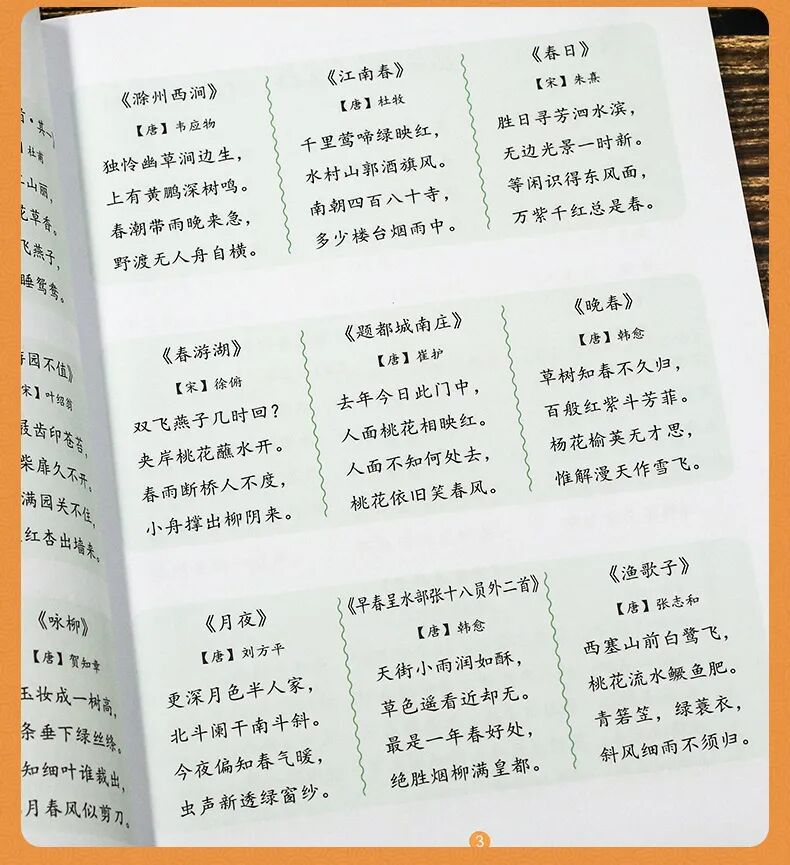 山丽，
花草香。
飞燕子，
睡鸳鸯。
园不值》
宋】叶绍翁
屐齿印苍苔，
柴扉久不开。
满园关不住，
红杏出墙来。
《咏柳》
【唐】贺知章
玉妆成一树高，
条垂下绿丝绦。
知细叶谁裁出，
月春风似剪刀。
《滁州西涧》
【唐】韦应物
独怜幽草涧边生，
上有黄鹏深树鸣。
春潮带雨晚来急，
野渡无人舟自横。
《江南春》
【唐】杜牧
千里莺啼绿映红，
水村山郭酒旗风。
南朝四百八十寺，
多少楼台烟雨中。
《春日》
【宋】朱熹
胜日寻芳泗水滨，
无边光景一时新。
等闲识得东风面，
万紫千红总是春。
《春游湖》
【宋】徐俯
双飞燕子几时回？
夹岸桃花蘸水开。
春雨断桥人不度，
小舟撑出柳阴来。
《题都城南庄》
【唐】崔护
去年今日此门中，
人面桃花相映红。
人面不知何处去，
桃花依旧笑春风。
《晚春》
【唐】韩愈
草树知春不久归，
百般红紫斗芳菲。
杨花榆英无才思，
惟解漫天作雪飞。
《月夜》
【唐】刘方平
更深月色半人家，
北斗阑干南斗斜。
今夜偏知春气暖，
虫声新透绿窗纱。
《早春呈水部张十八员外二首》
【唐】韩愈
天街小雨润如酥，
草色遥看近却无。
最是一年春好处，
绝胜烟柳满皇都。
《渔歌子》
【唐】张志和
西塞山前白鹭飞，
桃花流水鳜鱼肥。
青箬笠，绿蓑衣，
斜风细雨不须归。
3